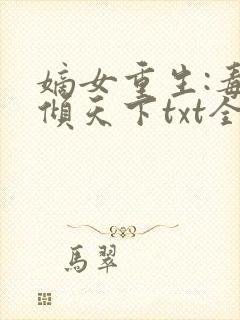 嫡女重生:毒
傾天下txt全
馬翠